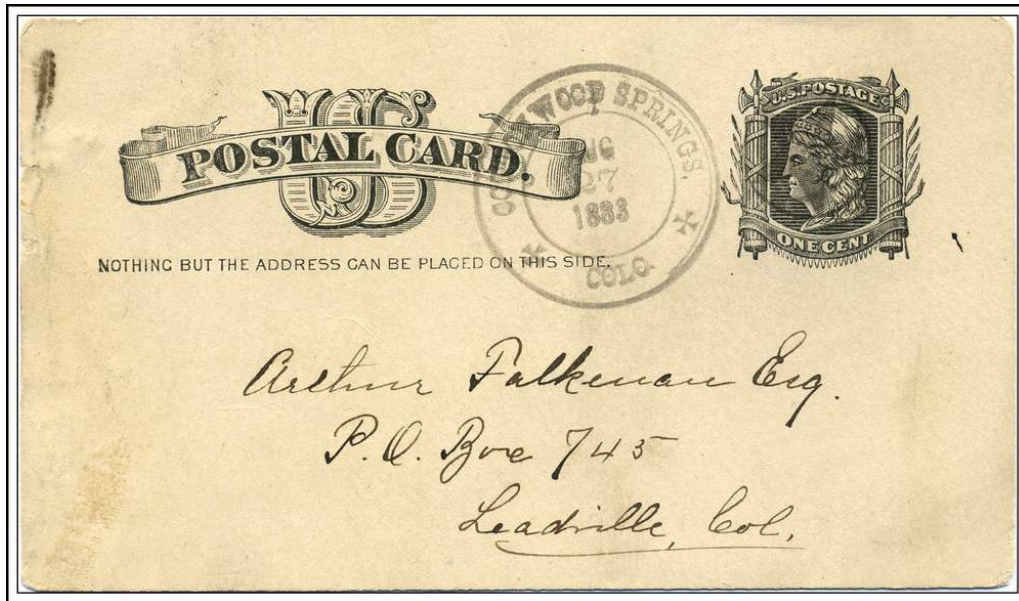 US
POSTAL CARD.
NOTHING BUT THE ADDRESS CAN BE PLACED ON THIS SIDE.
WOOD SPRINGS,
27
1883
COLO.
U.S. POSTAGE
ONE CENT
Arthur Falkenau Esq.
P.O. Box 745
Leadville, Col.